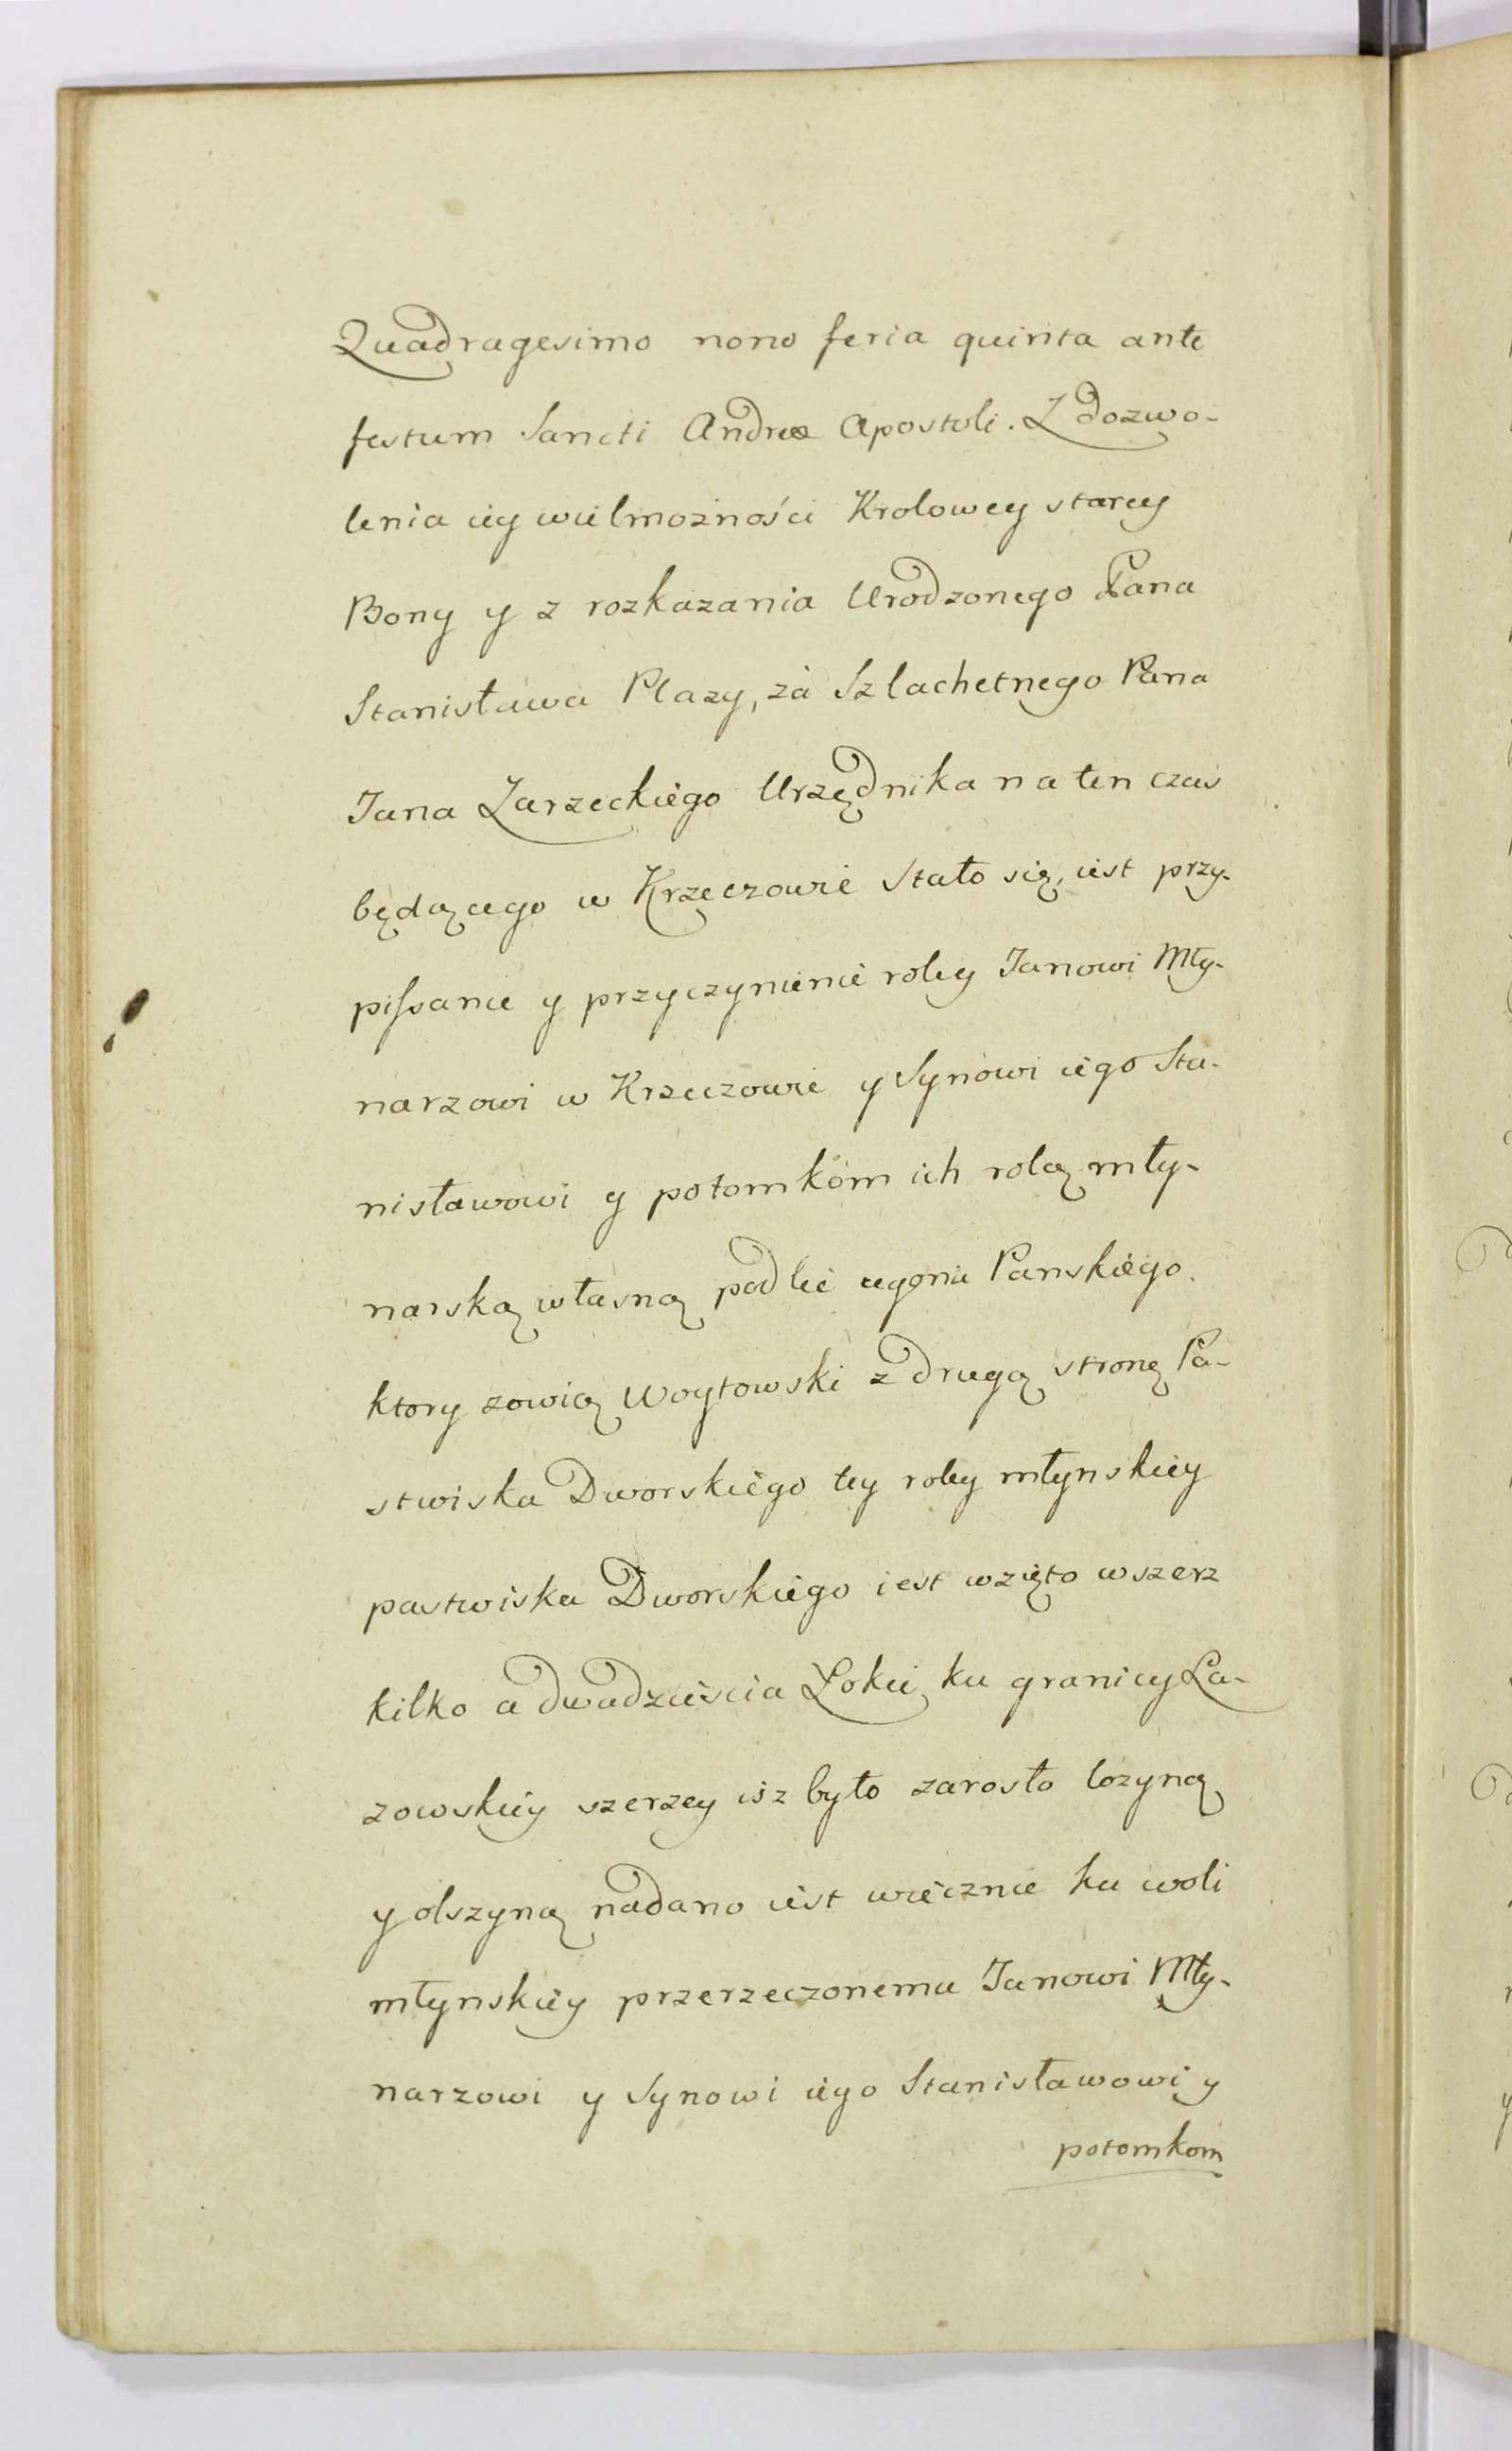 Quadragesimo nono feria quinta ante
festum Sancti Andreæ Apostoli. Z dozwo-
lenia iey wielmożności Krolowey starey
Bony y z rozkazania Urodzonego Pana
Stanisława Plazy, za Szlachetnego Pana
Jana Zarzeckiego Urzędnika na ten czas
będącego w Krzęczowie Stało się, iest przy-
pisanie y przyczynienie roley Janowi Mły-
narzowi w Krzeczowie y Synowi iego Sta-
nisławowi y potomkom ich rolą mły-
narską własną podle ugoru Panskiego.
ktory zowią Woytowski z drugą stronę Pa-
stwiska Dworskiego tey roley młynskiey
pastwiska Dworskiego iest wzięto wszerz
kilko a dwadzieścia Łokci, ku granicy Ła-
zowskiey szerzey isz było zarosło lozyną
y olszyną nadano iest wiecznie ku woli
młynskiey przerzeczonemu Janowi Mły-
narzowi y Synowi iego Stanisławowi y
potomkom